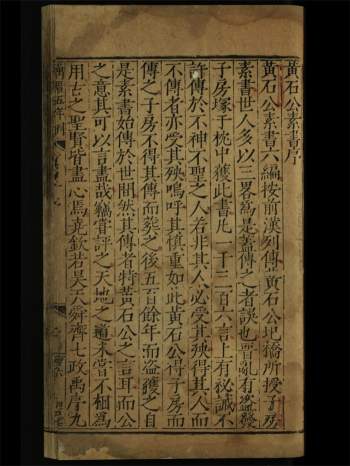 黃石公素書序
黃石公素書六編按前漢列傳黃石公圯橋所授子房
素書世人多以三畧爲是蓋傳之者誤也晉亂有盜發
子房塚于枕中獲此書凡一千三百六言上有秘誡不
許傳於不神不聖之人若非其人必受其殃得其人而
不傳者亦受其殃嗚呼其愼重如此黃石公得子房而
傳之子房不得其傳而葬之後五百餘年而盜獲之自
是素書始傳於世間然其傳者特黃石公之言耳而公
之意其可以言盡哉竊嘗評之天地之道未嘗不相爲
用古之聖賢皆盡心焉堯欽若昊天舜齊七政禹序九